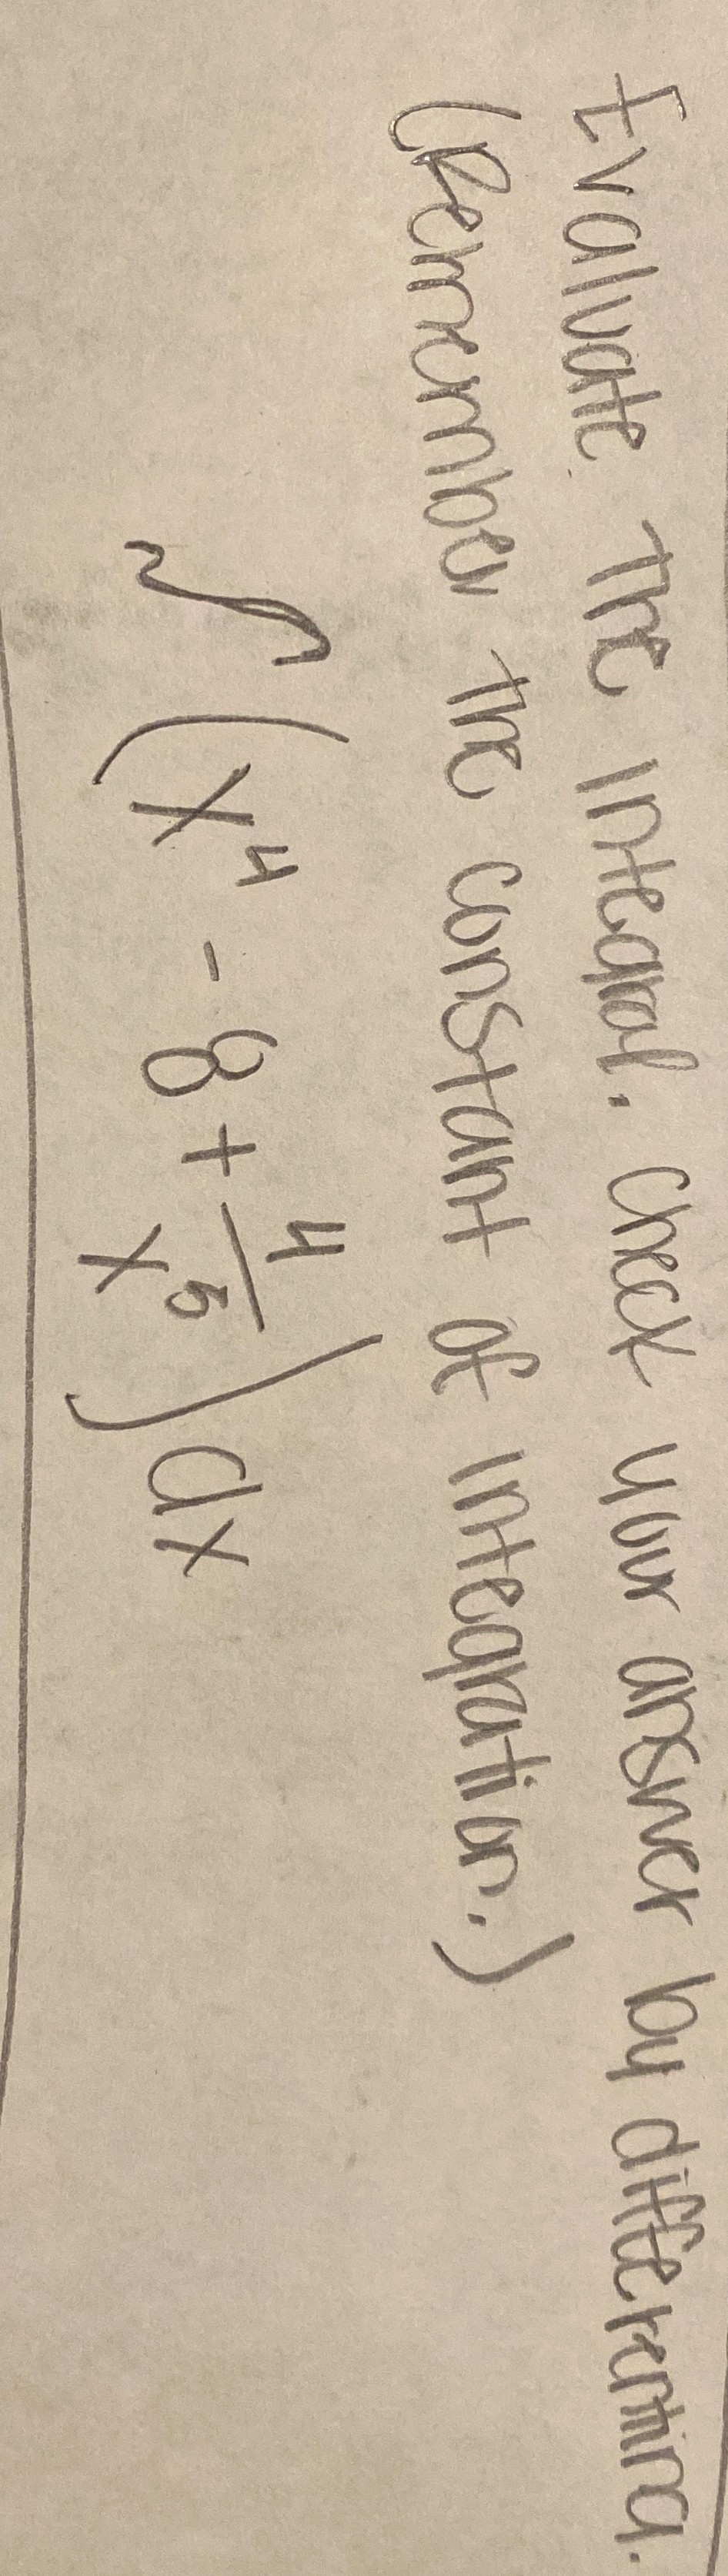 Evaluate the integral. Check your answer by differentiating.
(Remember the constant of integration.)
∫ (x⁴ - 8 + 4/x⁵) dx